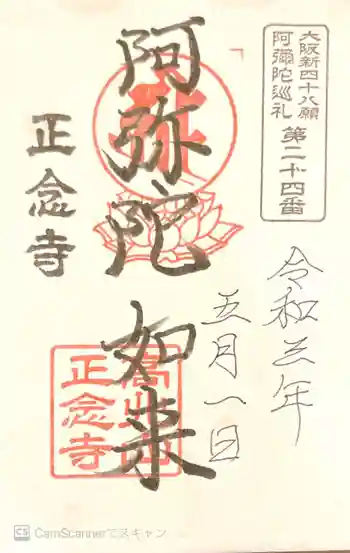 大阪新四十八願
阿彌陀巡礼 第二十四番
令和三年
五月一日
阿弥陀如来
正念寺
高山
正念寺
CS CamScannerでスキャン